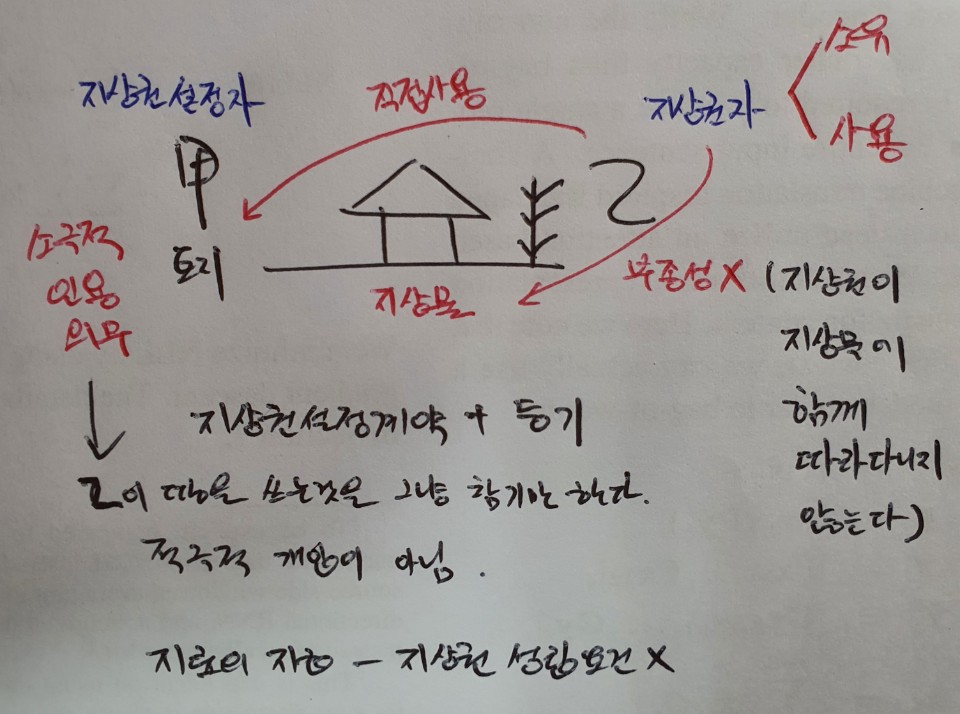 소유
지상권설정자
직접사용
지상권자
사용
甲
乙
소극적
인용
의무
토지
지상물
부종성 X
(지상권이
지상물에
함께
따라다니지
않는다)
지상권설정계약 + 등기
乙이 땅을 쓰는것을 그냥 참기만 한다.
적극적 개입이 아님.
지료의 지급 - 지상권 성립요건 X